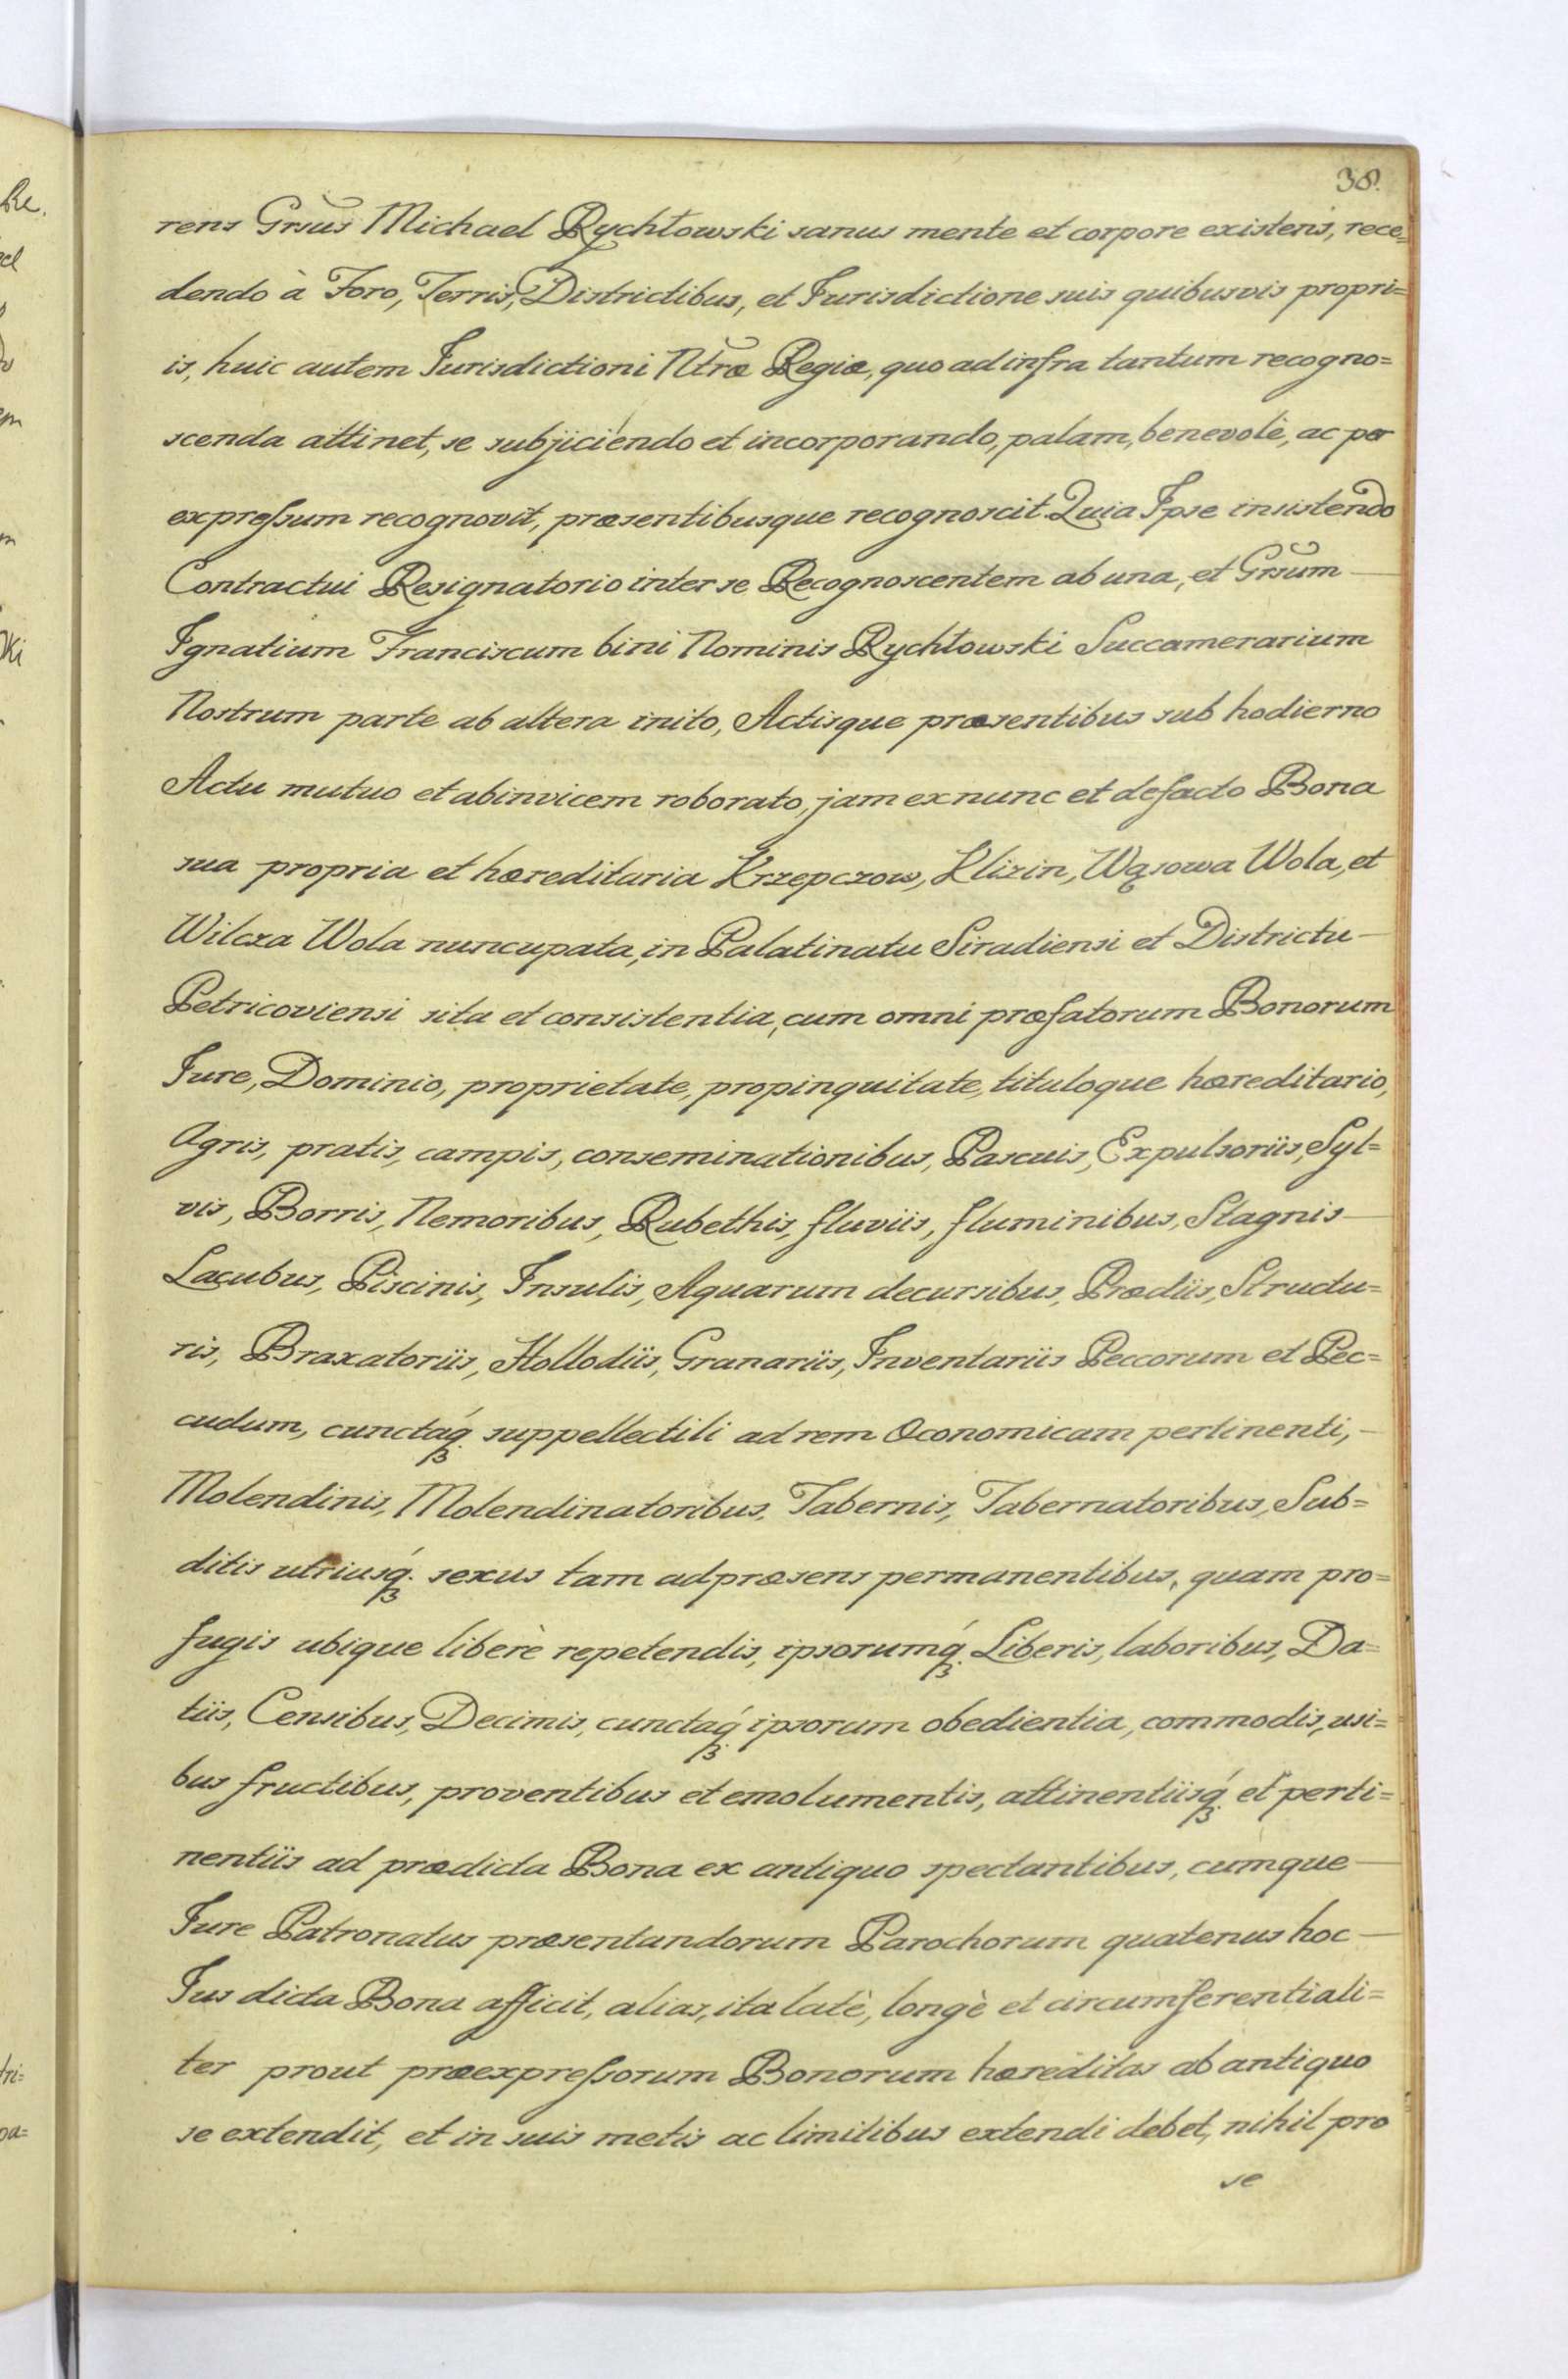 38.
rens Grsus Michael Rychłowski sanus mente et corpore existens, rece=
dendo à Foro, Terris, Districtibus, et Jurisdictione suis quibusvis propri=
is, huic autem Jurisdictioni Ntræ Regiæ, quo ad infra tantum recogno=
scenda attinet, se subjiciendo et incorporando, palam, benevolè, ac per
expreſsum recognovit, præsentibusque recognoscit. Quia Ipse insistendo
Contractui Resignatorio inter se Recognoscentem ab una, et Grsum —
Ignatium Franciscum bini Nominis Rychłowski Succamerarium
Nostrum parte ab altera inito, Actisque præsentibus sub hodierno
Actu mutuo et abinvicem roborato, jam ex nunc et de facto Bona
sua propria et hæreditaria Krzepczow, Klizin, Wąsowa Wola, et
Wilcza Wola nuncupata, in Palatinatu Siradiensi et Districtu —
Petricoviensi sita et consistentia, cum omni præfatorum Bonorum
Jure, Dominio, proprietate, propinquitate, tituloque hæreditario,
Agris, pratis, campis, conseminationibus, Pascuis, Expulsoriis, Syl=
vis, Borris, Nemoribus, Rubethis, fluviis, fluminibus, Stagnis —
Lacubus, Piscinis, Insulis, Aquarum decursibus, Prædiis, Structu=
ris, Braxatoriis, Hollodiis, Granariis, Inventariis Peccorum et Pec=
cudum, cunctáq́ꝫ suppellectili ad rem Œconomicam pertinenti, —
Molendinis, Molendinatoribus, Tabernis, Tabernatoribus, Sub=
ditis utriusq́ꝫ sexus tam ad præsens permanentibus, quam pro=
fugis ubique liberè repetendis, ipsorumq́ꝫ Liberis, laboribus, Da=
tiis, Censibus, Decimis, cunctaq́ꝫ ipsorum obedientia, commodis, usi=
bus fructibus, proventibus et emolumentis, attinentiisq́ꝫ et perti=
nentiis ad prædicta Bona ex antiquo spectantibus, cumque —
Jure Patronatus præsentandorum Parochorum quatenus hoc —
Jus dicta Bona afficit, alias, ita latè, longè et circumferentiali=
ter prout præexpreſsorum Bonorum hæreditas ab antiquo
se extendit, et in suis metis ac limitibus extendi debet, nihil pro
se